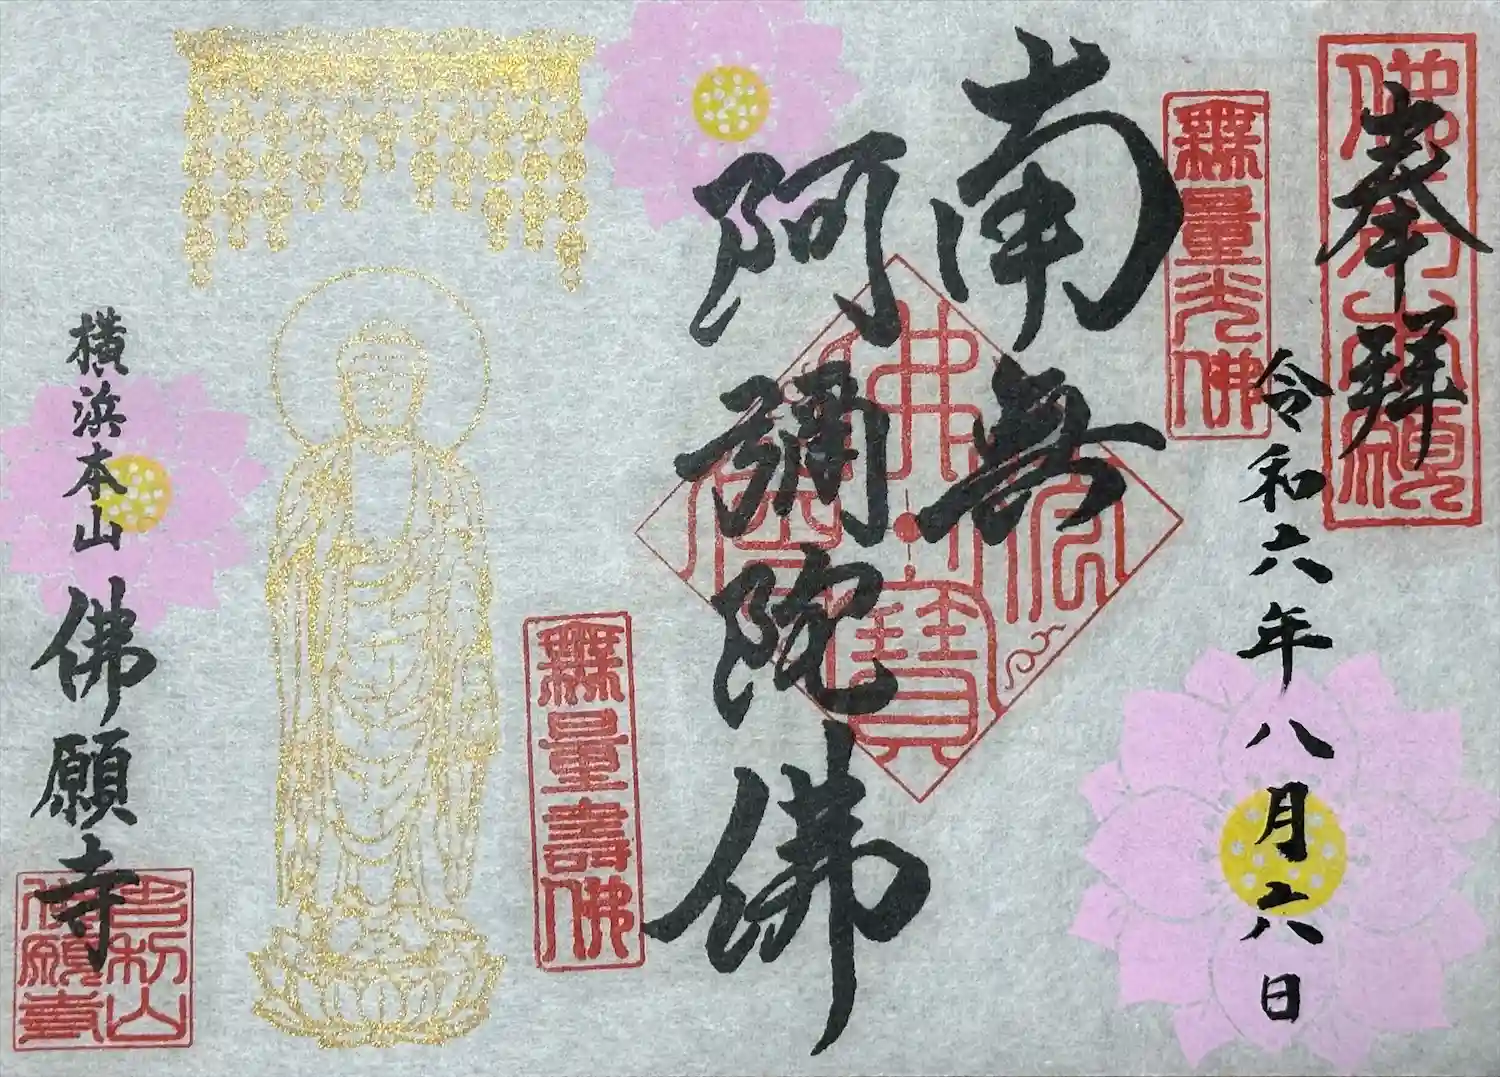 奉拜
令和六年八月六日
無量光佛
南無
阿彌陀佛
佛
寶
無量壽佛
横浜本山 佛願寺